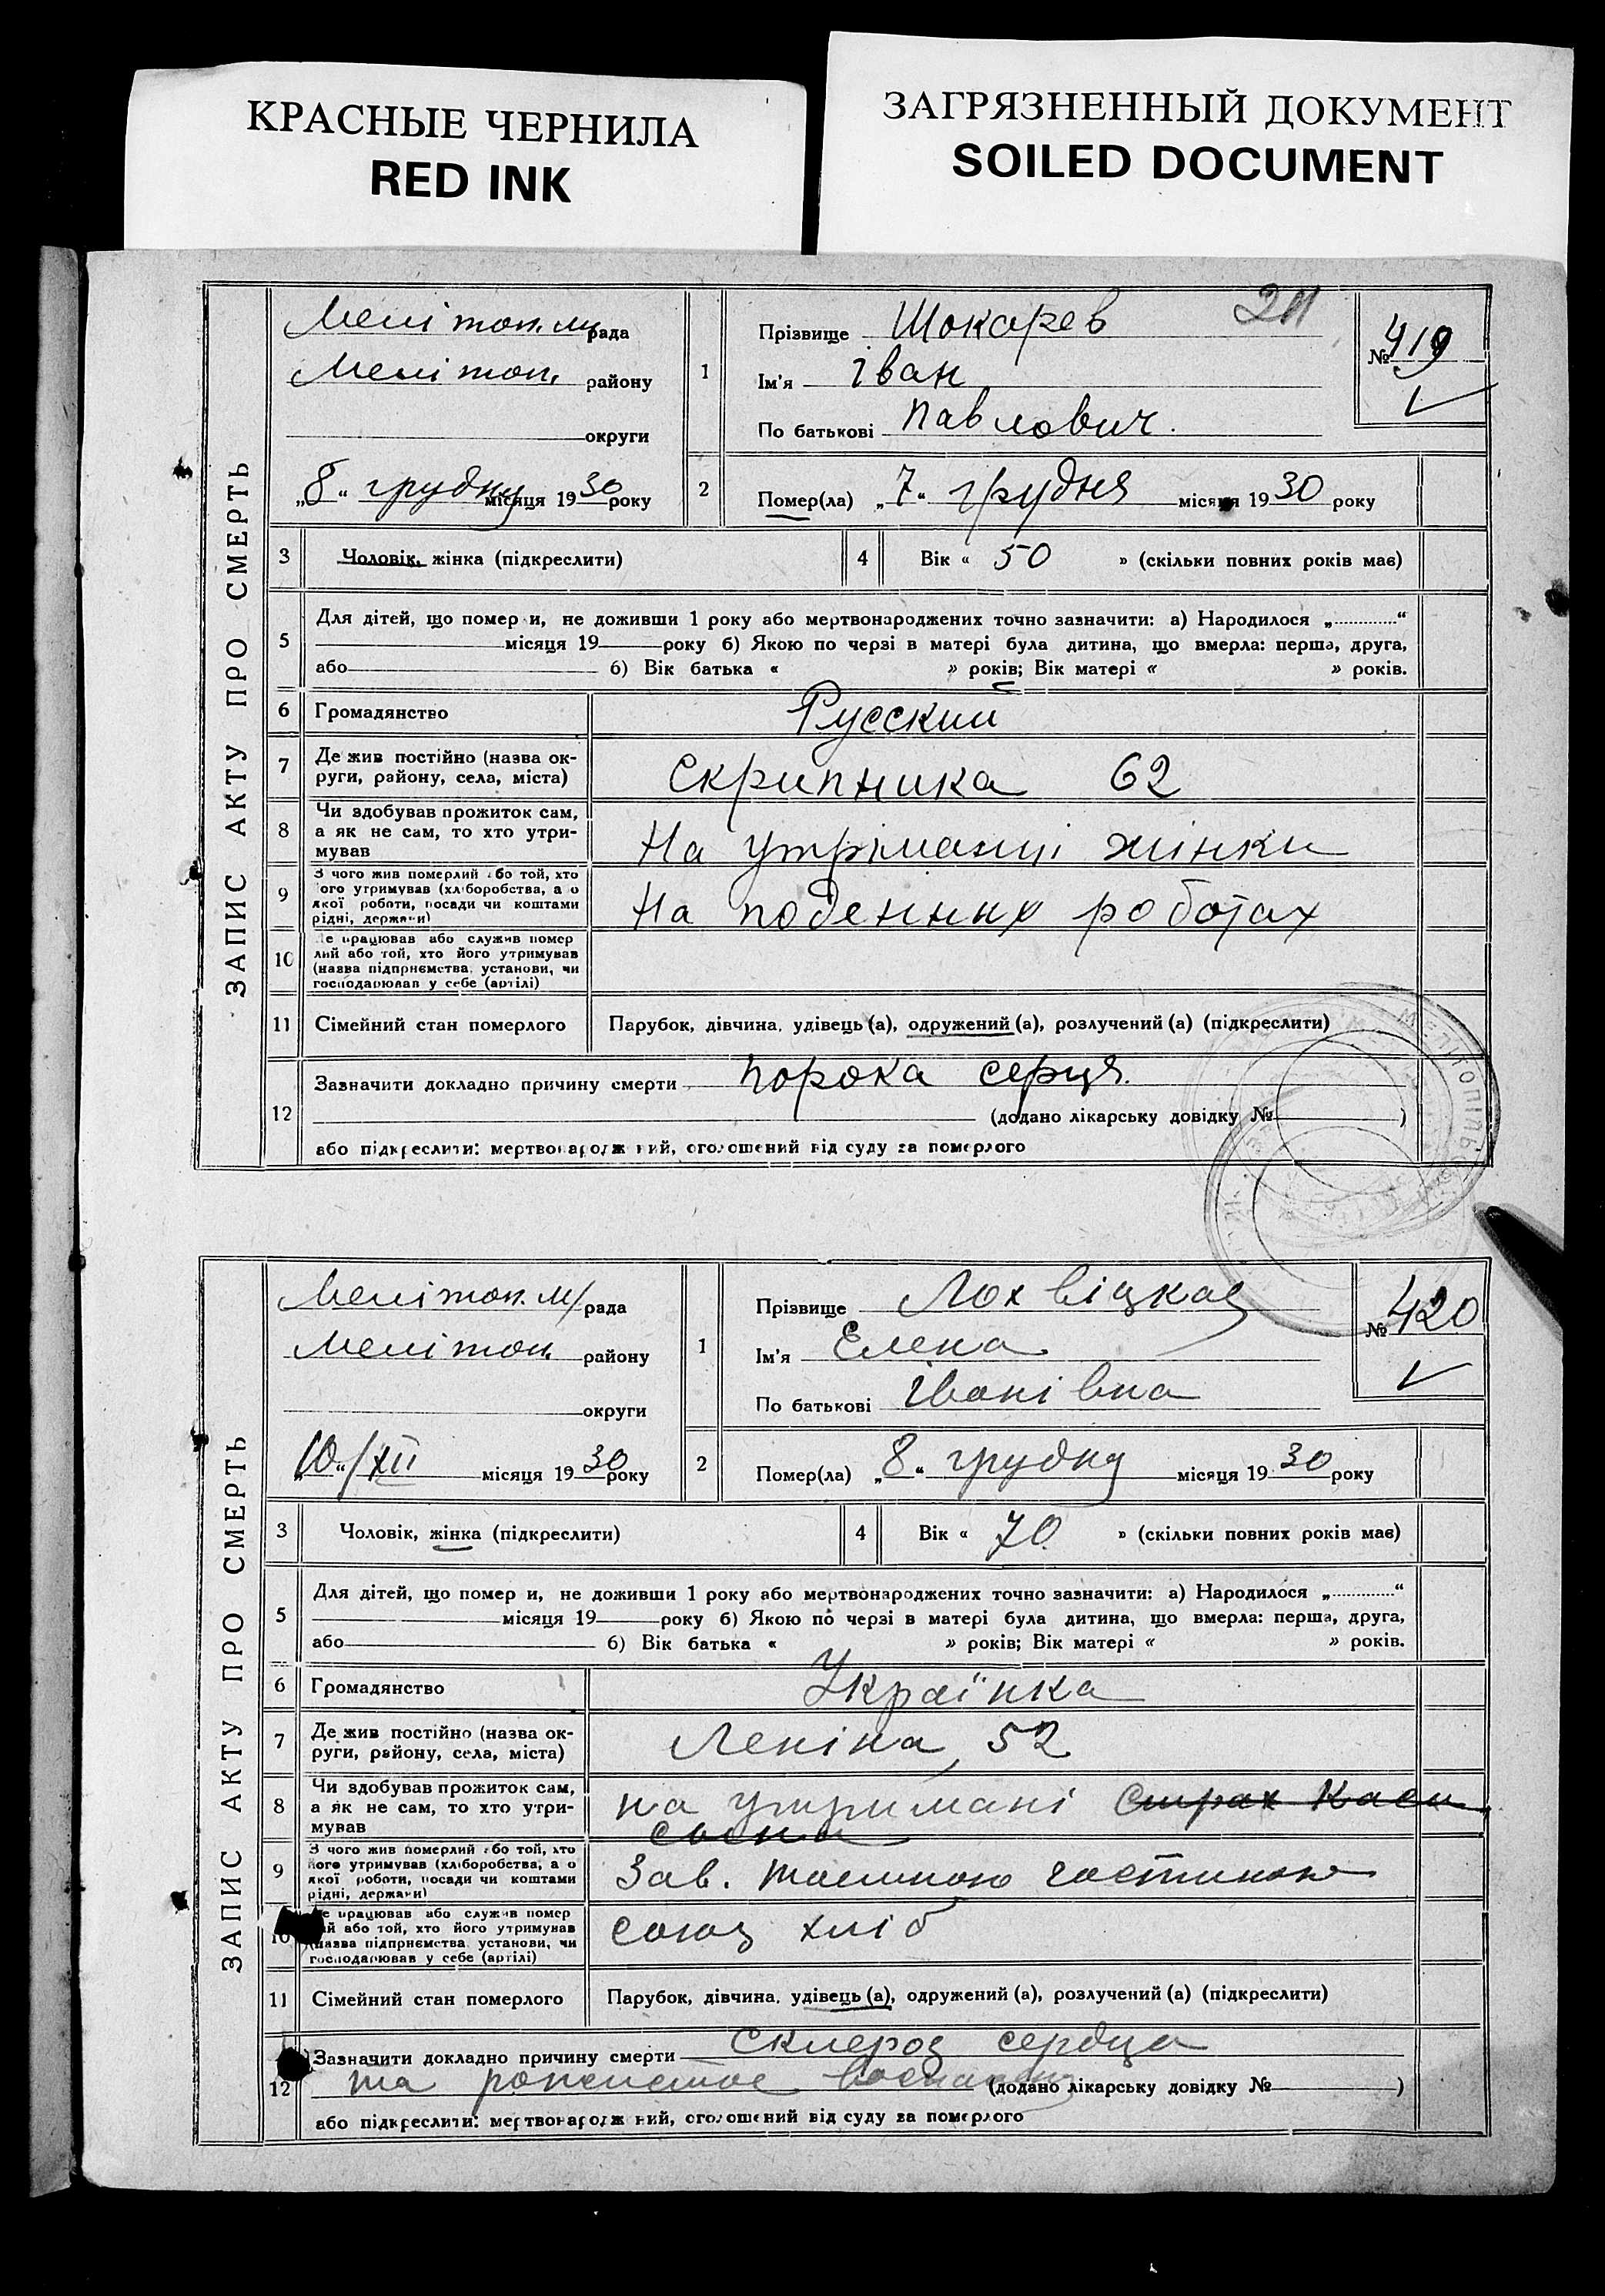 КРАСНЫЕ ЧЕРНИЛА
RED INK
ЗАГРЯЗНЕННЫЙ ДОКУМЕНТ
SOILED DOCUMENT
211
ЗАПИС АКТУ ПРО СМЕРТЬ
Мелітоп. м рада
Мелітоп. району
округи
„8“ грудня місяця 1930 року
1
Прізвище Шокарев
Ім'я Іван
По батькові Павлович.
№ 419
2
Помер(ла) „7“ грудня місяця 1930 року
3 Чоловік, жінка (підкреслити)
4 Вік « 50 » (скільки повних років має)
5
Для дітей, що помер и, не доживши 1 року або мертвонароджених точно зазначити: а) Народилося „ “
місяця 19 року б) Якою по черзі в матері була дитина, що вмерла: перша, друга,
або б) Вік батька « » років; Вік матері « » років.
6 Громадянство Русский
7 Де жив постійно (назва ок-
руги, району, села, міста)
Скрипника 62
8 Чи здобував прожиток сам,
а як не сам, то хто утри-
мував
На утріманці жінки
9 З чого жив померлий або той, хто
ого утримував (хліборобства, а о
якої роботи, посади чи коштами
рідні, держави)
На поденних роботах
10 е працював або служив помер
лий або той, хто його утримував
(назва підприємства, установи, чи
господарював у себе (артілі)
11 Сімейний стан померлого Парубок, дівчина, удівець (а), одружений (а), розлучений (а) (підкреслити)
12 Зазначити докладно причину смерти порока серця.
(додано лікарську довідку № )
або підкреслити: мертвонародж ний, оголошений від суду за померлого
МЕЛІТОПІЛЬ
ЗАПИС АКТУ ПРО СМЕРТЬ
Мелітоп. м/рада
Мелітоп. району
округи
„10“/XII місяця 1930 року
1
Прізвище Лохвіцкая
Ім'я Елена
По батькові Іванівна
№ 420
2
Помер(ла) „8“ грудня місяця 1930 року
3 Чоловік, жінка (підкреслити)
4 Вік « 70 » (скільки повних років має)
5
Для дітей, що помер и, не доживши 1 року або мертвонароджених точно зазначити: а) Народилося „ “
місяця 19 року б) Якою по черзі в матері була дитина, що вмерла: перша, друга,
або б) Вік батька « » років; Вік матері « » років.
6 Громадянство Українка
7 Де жив постійно (назва ок-
руги, району, села, міста)
Леніна, 52
8 Чи здобував прожиток сам,
а як не сам, то хто утри-
мував
на утримані Страх Каси
сына
9 З чого жив померлий або той, хто
його утримував (хліборобства, а о
якої роботи, посади чи коштами
рідні, держави)
Зав. таємною частиною
10 е працював або служив помер
ий або той, хто його утримував
(назва підприємства, установи, чи
господарював у себе (артілі)
союз хліб
11 Сімейний стан померлого Парубок, дівчина, удівець (а), одружений (а), розлучений (а) (підкреслити)
12 Зазначити докладно причину смерти Склероз сердца
та
(додано лікарську довідку № )
або підкреслити: мертвонародж ний, оголошений від суду за померлого